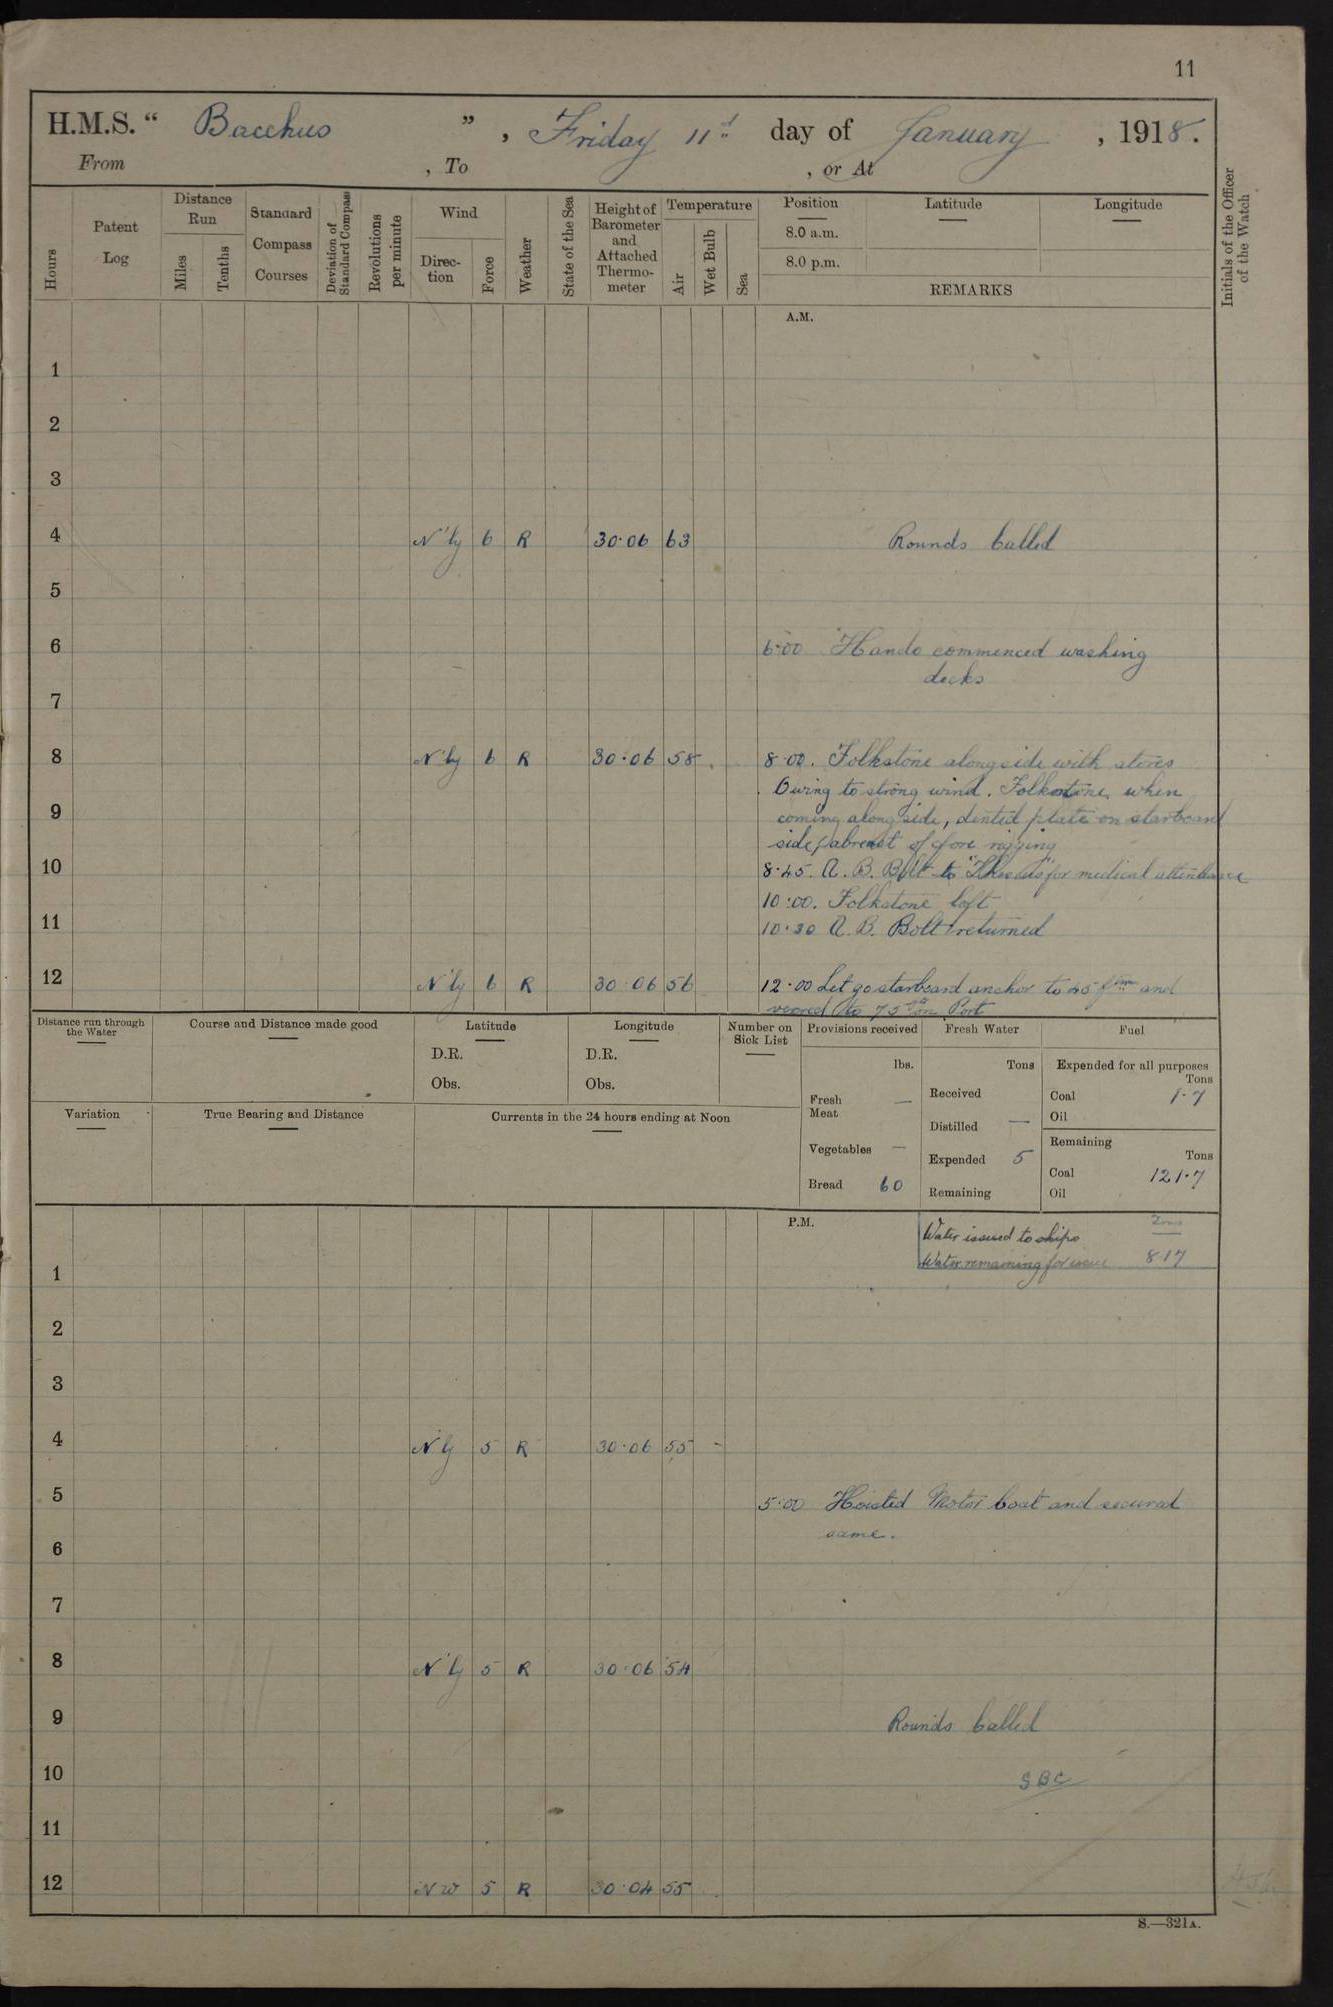 11
H.M.S. “ Bacchus ” , Friday 11th day of January , 1918.
From , To , or At
Hours
Patent Log
Distance Run
Miles
Tenths
Standard Compass Courses
Deviation of Standard Compass
Revolutions per minute
Wind
Direc-tion
Force
Weather
State of the Sea
Height of Barometer and Attached Thermo-meter
Temperature
Air
Wet Bulb
Sea
Position Latitude Longitude
8.0 a.m.
8.0 p.m.
REMARKS
Initials of the Officer of the Watch
A.M.
1
2
3
4 N'ly 6 R 30·06 63 Rounds Called
5
6 6·00 Hands commenced washing
decks
7
8 N'ly 6 R 30·06 58 8·00. Folkstone alongside with stores
Owing to strong wind. Folkstone, when
9 coming alongside, dented plate on starboard
side, abreast of fore rigging
10 8·45. A. B. Bolt to "Theseus" for medical attendance
10·00. Folkstone left
11 10·30 A. B. Bolt returned
12 N'ly 6 R 30·06 56 12·00 Let go starboard anchor to 45 fms and
veered to 75 on Port
Distance run through the Water
Course and Distance made good
Latitude
D.R.
Obs.
Longitude
D.R.
Obs.
Number on Sick List
Variation
True Bearing and Distance
Currents in the 24 hours ending at Noon
Provisions received
lbs.
Fresh Meat —
Vegetables —
Bread 60
Fresh Water
Tons
Received
Distilled —
Expended 5
Remaining
Fuel
Expended for all purposes
Tons
Coal 1·7
Oil
Remaining
Tons
Coal 121·7
Oil
P.M.
Tons
Water issued to ships —
Water remaining for issue 817
1
2
3
4 N'ly 5 R 30·06 55
5 5·00 Hoisted Motor boat and secured
same.
6
7
8 N'ly 5 R 30·06 54
9 Rounds Called
10 SBC
11
12 NW 5 R 30·04 55
S.—321A.